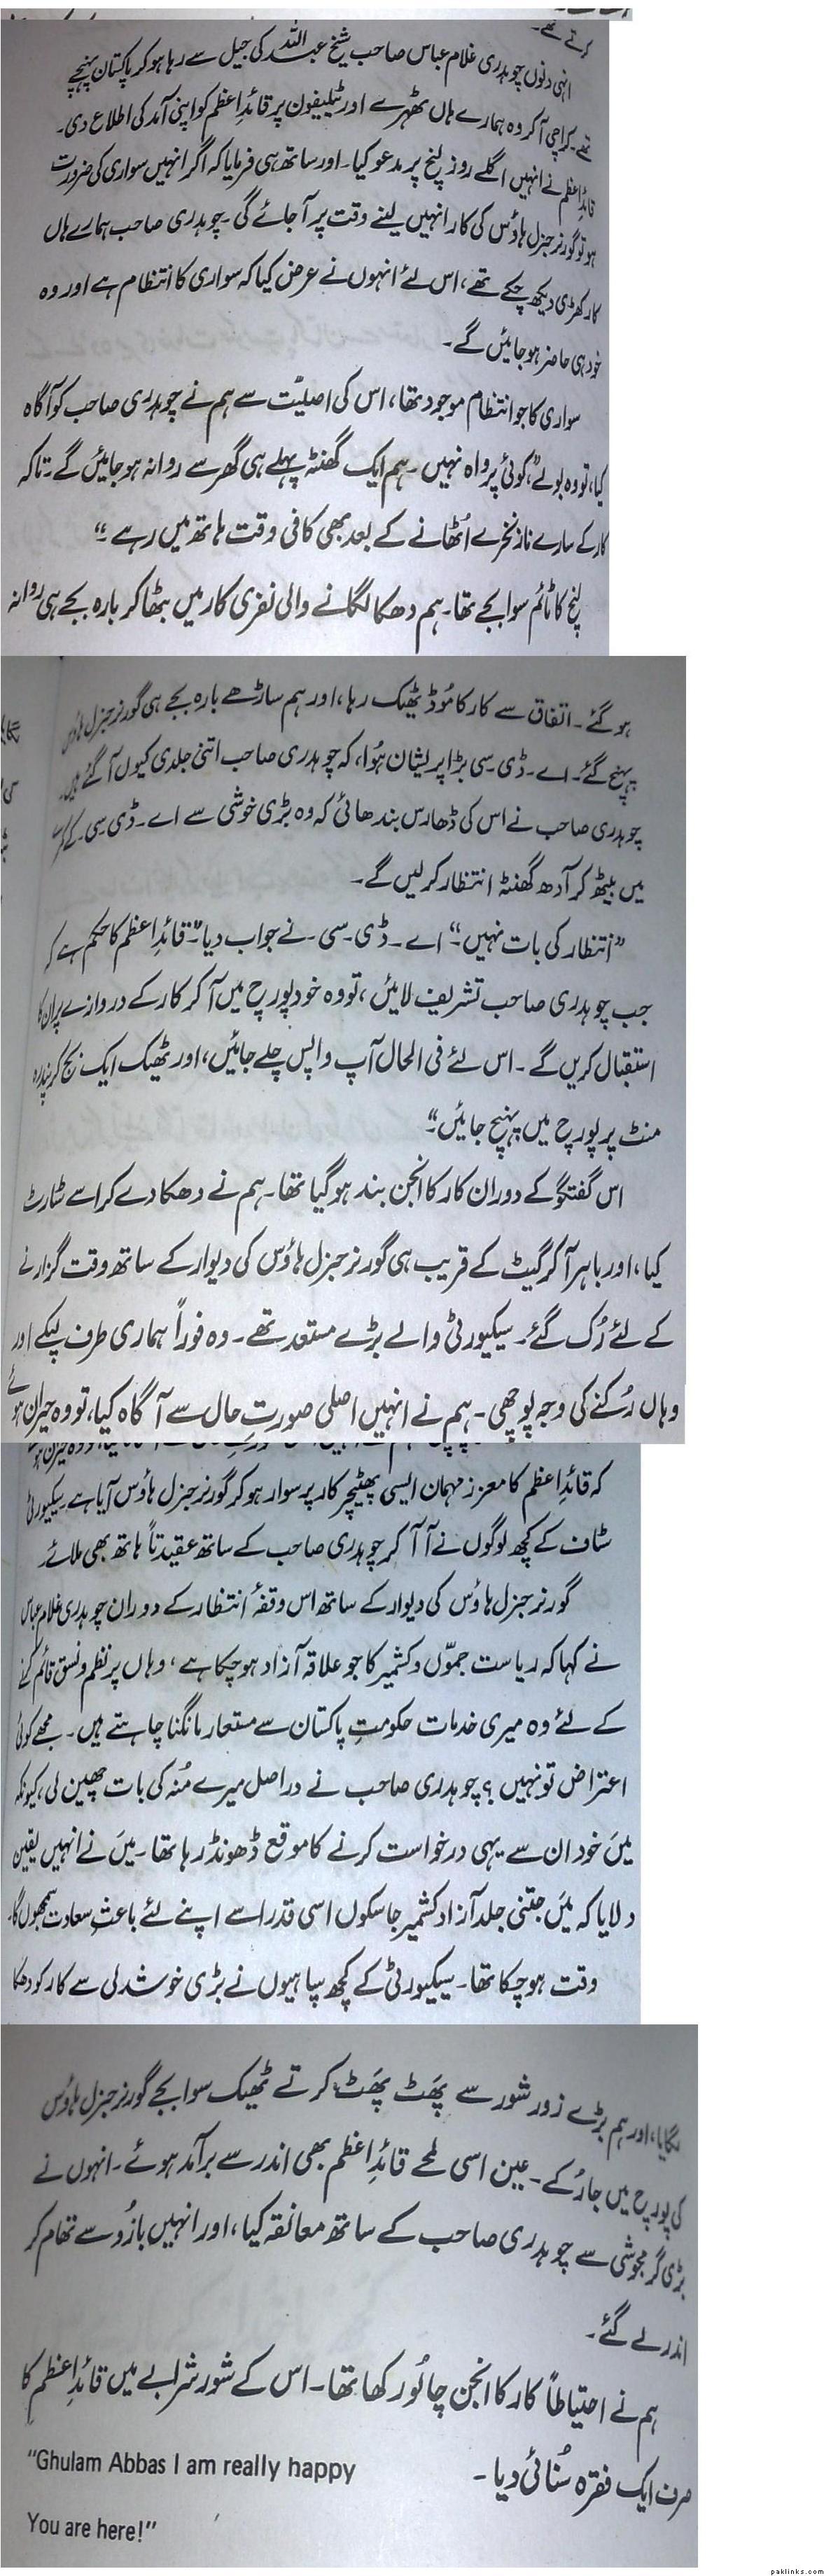 کرتے تھے۔
انہی دنوں چوہدری غلام عباس صاحب شیخ عبداللہ کی جیل سے رہا ہو کر پاکستان پہنچے
تھے۔ کراچی آ کر وہ ہمارے ہاں ٹھہرے اور ٹیلیفون پر قائدِاعظم کو اپنی آمد کی اطلاع دی۔
قائدِاعظم نے انہیں اگلے روز لنچ پر مدعو کیا۔ اور ساتھ ہی فرمایا کہ اگر انہیں سواری کی ضرورت
ہو تو گورنر جنرل ہاؤس کی کار انہیں لینے وقت پر آ جائے گی۔ چوہدری صاحب ہمارے ہاں
کار کھڑی دیکھ چکے تھے، اس لئے انہوں نے عرض کیا کہ سواری کا انتظام ہے اور وہ
خود ہی حاضر ہو جائیں گے۔
سواری کا جو انتظام موجود تھا، اس کی اصلیّت سے ہم نے چوہدری صاحب کو آگاہ
کیا، تو وہ بولے، "کوئی پرواہ نہیں۔ ہم ایک گھنٹہ پہلے ہی گھر سے روانہ ہو جائیں گے۔ تاکہ
کار کے سارے ناز نخرے اُٹھانے کے بعد بھی کافی وقت ہاتھ میں رہے۔"
لنچ کا ٹائم سوا بجے تھا۔ ہم دھکا لگانے والی نفری کار میں بٹھا کر بارہ بجے ہی روانہ
ہو گئے۔ اتفاق سے کار کا مُوڈ ٹھیک رہا، اور ہم ساڑھے بارہ بجے ہی گورنر جنرل ہاؤس
پہنچ گئے۔ اے۔ ڈی۔ سی بڑا پریشان ہُوا، کہ چوہدری صاحب اتنی جلدی کیوں آ گئے ہیں۔
چوہدری صاحب نے اس کی ڈھارس بندھائی کہ وہ بڑی خوشی سے اے۔ ڈی۔ سی۔ کے کمرے
میں بیٹھ کر آدھ گھنٹہ انتظار کر لیں گے۔
"انتظار کی بات نہیں۔" اے۔ ڈی۔ سی۔ نے جواب دیا۔ "قائدِاعظم کا حکم ہے کہ
جب چوہدری صاحب تشریف لائیں، تو وہ خود پورچ میں آ کر کار کے دروازے پر ان کا
استقبال کریں گے۔ اس لئے فی الحال آپ واپس چلے جائیں، اور ٹھیک ایک بج کر پندرہ
منٹ پر پورچ میں پہنچ جائیں۔"
اس گفتگو کے دوران کار کا انجن بند ہو گیا تھا۔ ہم نے دھکا دے کر اسے سٹارٹ
کیا، اور باہر آ کر گیٹ کے قریب ہی گورنر جنرل ہاؤس کی دیوار کے ساتھ وقت گزارنے
کے لئے رُک گئے۔ سیکیورٹی والے بڑے مستعد تھے۔ وہ فوراً ہماری طرف لپکے اور
وہاں رُکنے کی وجہ پوچھی۔ ہم نے انہیں اصلی صورتِ حال سے آگاہ کیا، تو وہ حیران ہوئے
کہ قائدِاعظم کا معزز مہمان ایسی پھٹیچر کار پر سوار ہو کر گورنر جنرل ہاؤس آیا ہے۔ سیکیورٹی
سٹاف کے کچھ لوگوں نے آ آ کر چوہدری صاحب کے ساتھ عقیدتاً ہاتھ بھی ملائے۔
گورنر جنرل ہاؤس کی دیوار کے ساتھ اس وقفۂ انتظار کے دوران چوہدری غلام عباس
نے کہا کہ ریاست جموّں و کشمیر کا جو علاقہ آزاد ہو چکا ہے، وہاں پر نظم و نسق قائم کرنے
کے لئے وہ میری خدمات حکومتِ پاکستان سے مستعار مانگنا چاہتے ہیں۔ مجھے کوئی
اعتراض تو نہیں؟ چوہدری صاحب نے دراصل میرے مُنہ کی بات چھین لی، کیونکہ
میں خود ان سے یہی درخواست کرنے کا موقع ڈھونڈ رہا تھا۔ میں نے انہیں یقین
دلایا کہ میں جتنی جلد آزاد کشمیر جا سکوں اسی قدر اسے اپنے لئے باعثِ سعادت سمجھوں گا۔
وقت ہو چکا تھا۔ سیکیورٹی کے کچھ سپاہیوں نے بڑی خوشدلی سے کار کو دھکا
لگایا، اور ہم بڑے زور شور سے پَھٹ پَھٹ کرتے ٹھیک سوا بجے گورنر جنرل ہاؤس
کی پورچ میں جا رُکے۔ عین اسی لمحے قائدِاعظم بھی اندر سے برآمد ہوئے۔ انہوں نے
بڑی گرمجوشی سے چوہدری صاحب کے ساتھ معانقہ کیا، اور انہیں بازُو سے تھام کر
اندر لے گئے۔
ہم نے احتیاطاً کار کا انجن چالُو رکھا تھا۔ اس کے شور شرابے میں قائدِاعظم کا
صرف ایک فقرہ سُنائی دیا۔
"Ghulam Abbas I am really happy
You are here!"
paklinks.com